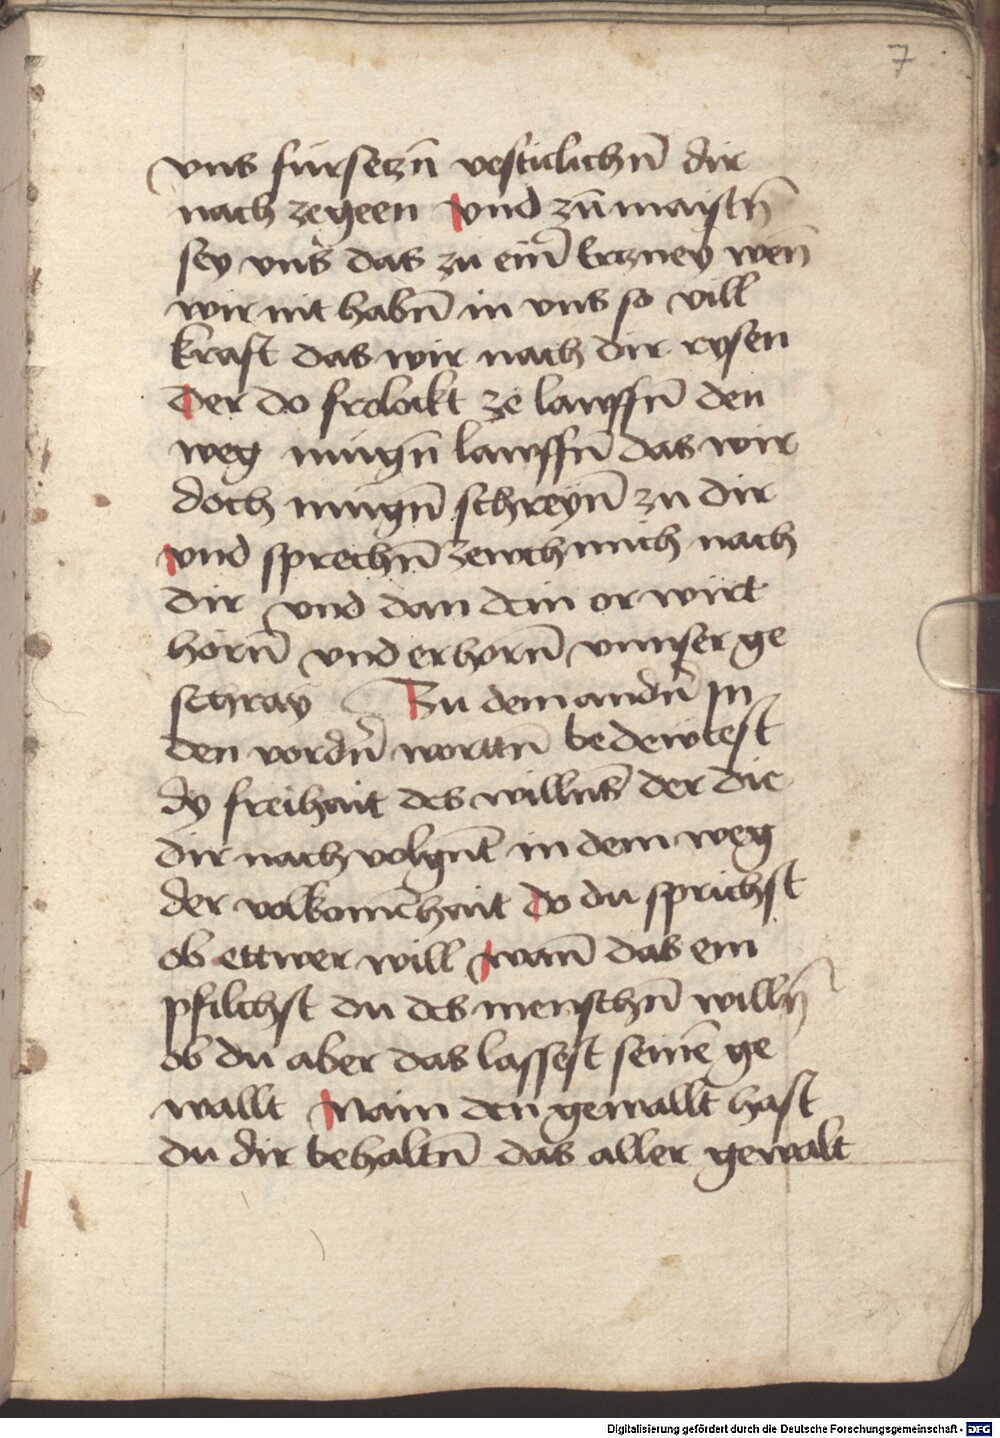 7
vns fúrseczn̄ vesticlichn̄ dir
nach zegeen vnd zūmaistn̄
sey vns das zu ein̄ erczney wen̄
wir nit habn̄ in vns so vill
kraft das wir nach dir rysen
der do frolockt ze lawffn̄ den
weg mugn̄ lawffn̄ das wir
doch mugn̄ schreyn̄ zu dir
vnd sprechn̄ zewch mich nach
dir vnd dan dein or wirt
hörn̄ vnd erhorn̄ vnnser ge
schray Zu dem andn̄ In
den vordn̄ wortn̄ bedewtest
dy freihait des willns der die
dir nach volgnt in dem weg
der volkomēhait do du sprichst
ob ettwer will wan̄ das em
pfilchst du des menschn̄ willn̄
ob du aber das lassest seinē ge
wallt Wann den gewallt hast
du dir behaltn̄ das aller gewalt
Digitalisierung gefördert durch die Deutsche Forschungsgemeinschaft - DFG